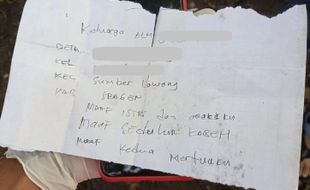 Keluarga ALM
DESA
KEL
KEC Sumber Lawang
KAB SRAGEN
MAAF ISTRI dan anakku
MAAF SEDULUR KABEH
MAAF Kedua Mertuaku